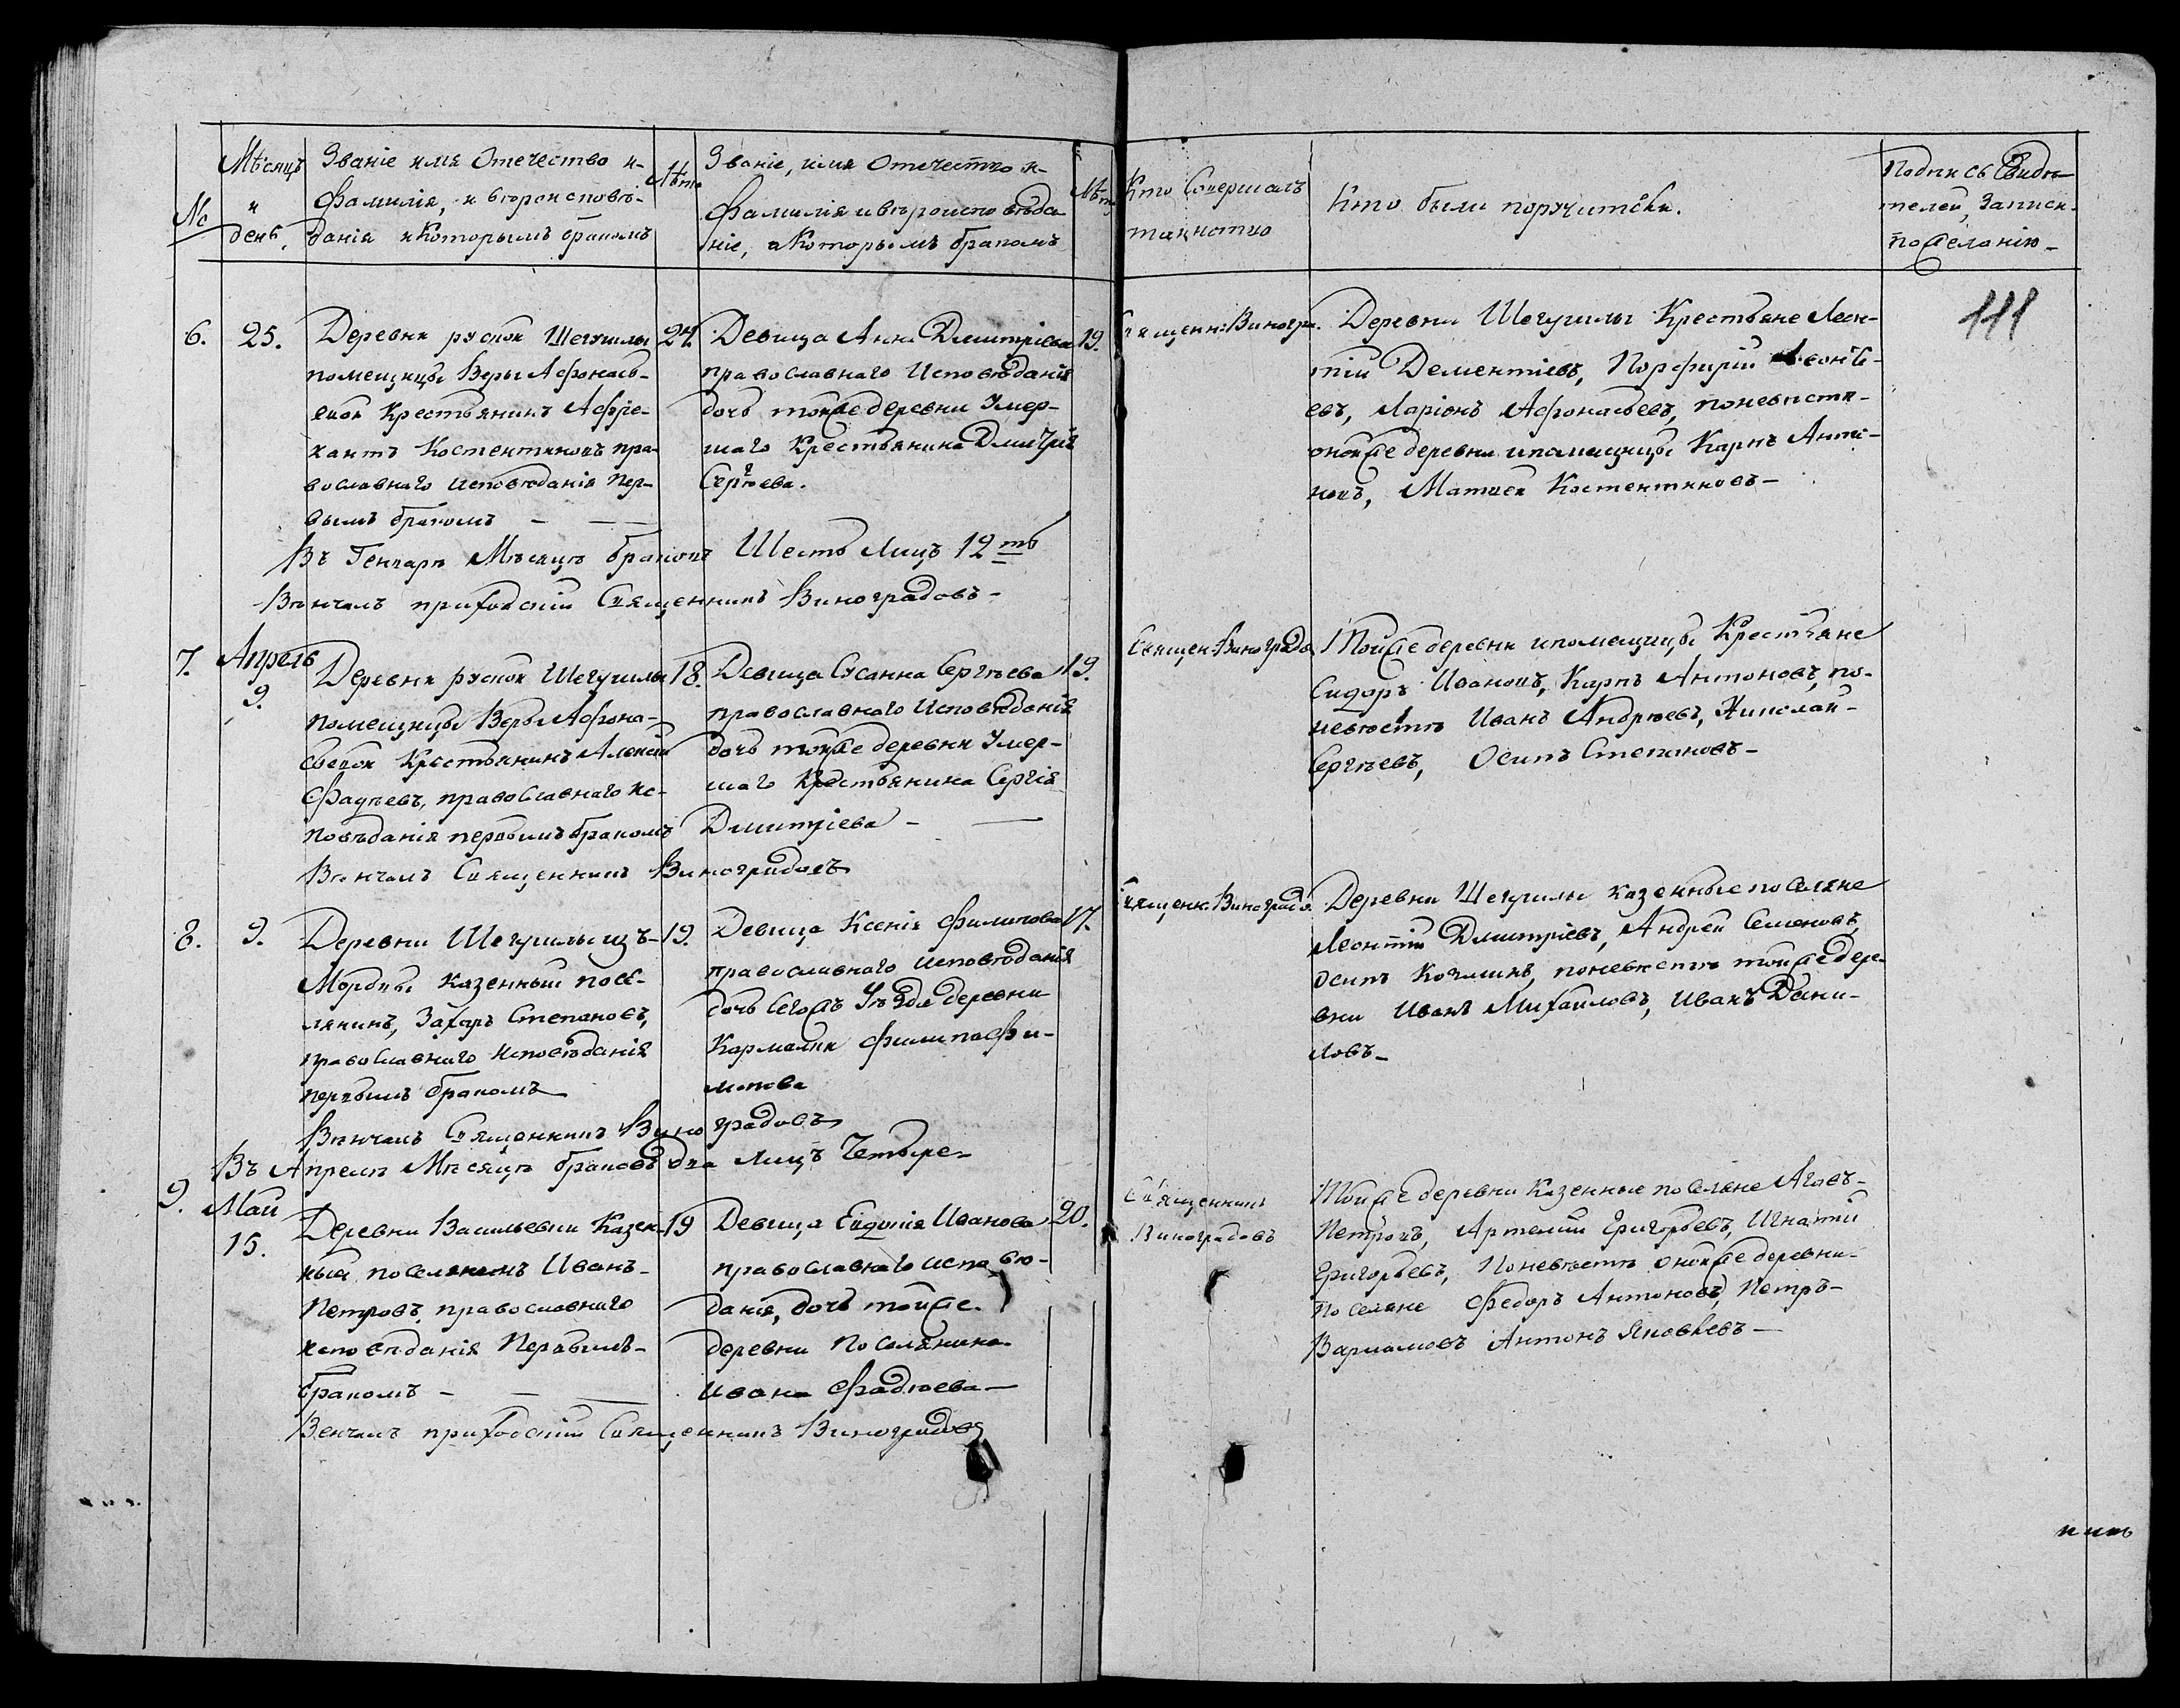 №
Мѣсяцъ
и
день.
Званіе имя Отечество и
Фамилія, и вѣроисповѣ-
данія и Которымъ бракомъ
Лѣта
Званіе, имя Отечество и
Фамилія и вѣроисповѣда-
ніе, и Которымъ бракомъ
Лѣта
Кто Совершалъ
таинство
Кто были поручители.
Подпись Свидѣ-
телей, Записи
по желанію
111
6.
25.
Деревни руской Шегушилы
помещицы Веры Афонась-
евой Крестьянинъ
Костентиновъ пра-
вославнаго исповѣданія пер-
вымъ бракомъ
24.
Девица Анна Дмитріева
православнаго Исповѣданія
дочь тойже деревни Умер-
шаго Крестьянина Дмитрія
Сергѣева.
19.
Священ: Виногра.
Деревни Шегушилы Крестьяне Леон-
тій Дементіевъ, Порфирій Леонть-
евъ, Ларіонъ Афонасьевъ, поневѣсти
онойже деревни ипомещицы Карпъ Анто-
новъ, Матвей Костентиновъ
Въ Генварѣ Мѣсяцѣ браковъ Шесть Лицъ 12ть
Вѣнчалъ приходскій Священникъ Виноградовъ
7.
Апрель
9.
Деревни руской Шегушилы
помещицы Веры Афона-
сьевой Крестьянинъ Алексей
Фадѣевъ, православнаго ис-
повѣданія первымъ бракомъ
18.
Девица Сусанна Сергѣева
православнаго Исповѣданія
дочь тойже деревни Умер-
шаго Крестьянина Сергія
Дмитріева
19.
Священ: Виноградо.
Тойже деревни ипомещицы Крестьяне
Сидоръ Ивановъ, Карпъ Антоновъ, по-
невѣстѣ Иванъ Андрѣевъ, Николай
Сергѣевъ, Осипъ Степановъ
Вѣнчалъ Священникъ Виноградовъ
8.
9.
Деревни Шегушилы изъ
Мордвы казенный посе-
лянинъ, Захаръ Степановъ,
православнаго Исповѣданія
первымъ бракомъ
19.
Девица Ксенія Филипова
православнаго исповѣданія
дочь Сегожъ Уѣзда деревни
Кармалки Филипа Фи-
липова
17.
Священ: Виноградо.
Деревни Шегушилы казенные поселяне
Леонтій Дмитріевъ, Андрей Семеновъ,
Осипъ Козминъ, поневѣстѣ тойже дере-
вни Иванъ Михаиловъ, Иванъ Дани-
ловъ
Вѣнчалъ Священникъ Виноградовъ
Въ Апрелѣ Мѣсяцѣ браковъ два лицъ Четыре
9.
Май
15.
Деревни Васильевки Казен-
ный поселянинъ Иванъ
Петровъ, православнаго
исповѣданія Первымъ
бракомъ
19
Девица Евдокія Иванова
православнаго исповѣ-
данія, дочь тойже
деревни Поселянина
Ивана Фадѣева
20.
Священникъ
Виноградовъ
Тойже деревни Казенные поселяне
Петровъ, Артемій Григорьевъ, Игнатій
Григорьевъ, Поневѣстѣ онойже деревни
поселяне Федоръ Антоновъ, Петръ
Варламовъ Антонъ Яковлевъ
Венчалъ приходскій Священникъ Виноградовъ